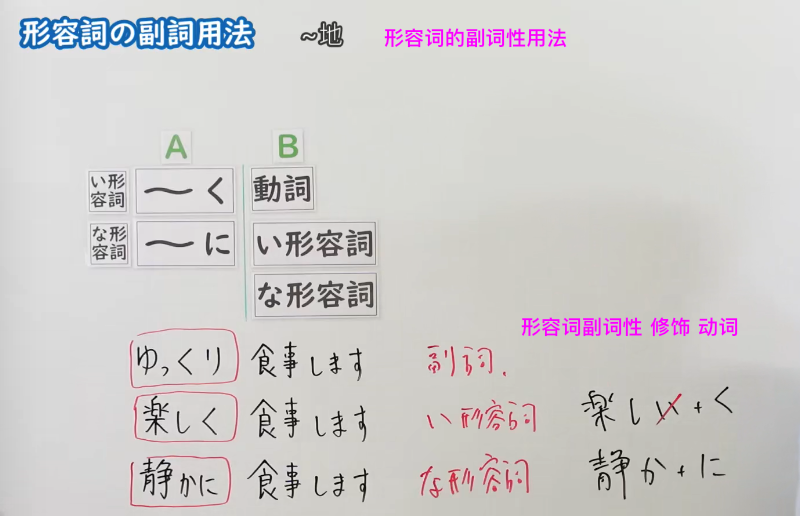 形容詞の副詞用法 ~地 形容词的副词性用法
A B
い形容詞 ～く 動詞
な形容詞 ～に い形容詞
な形容詞
形容词副词性 修饰 动词
ゆっくり 食事します 副詞.
楽しく 食事します い形容詞 楽しい+く
静かに 食事します な形容詞 静か+に